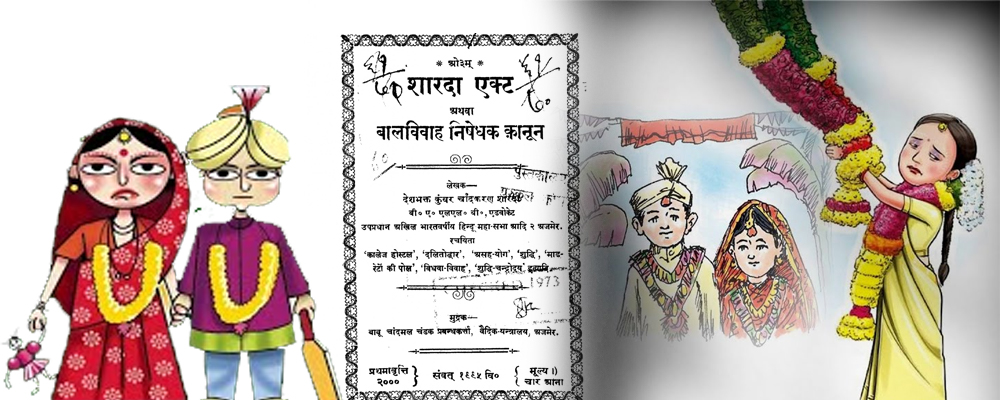 * ओ३म् *
शारदा एक्ट
अथवा
बालविवाह निषेधक क़ानून
लेखक—
देशभक्त कुंवर चाँदकरण शारदा
बी० ए० एलएल० बी०, एडवोकेट
उपप्रधान अखिल भारतवर्षीय हिन्दू महा-सभा आदि २ अजमेर.
रचयिता
'कालेज होस्टल', 'दलितोद्धार', 'असहयोग', 'शुद्धि', 'माड-
रेटों की पोल', 'विधवा-विवाह', 'शुद्धि-चन्द्रोदय' इत्यादि.
1973
मुद्रक—
बाबू चांदमल चंडक प्रबन्धकर्त्ता, वैदिक-यन्त्रालय, अजमेर.
प्रथमावृत्ति २००० } संवत् १९९५ वि० { मूल्य ।) चार आना